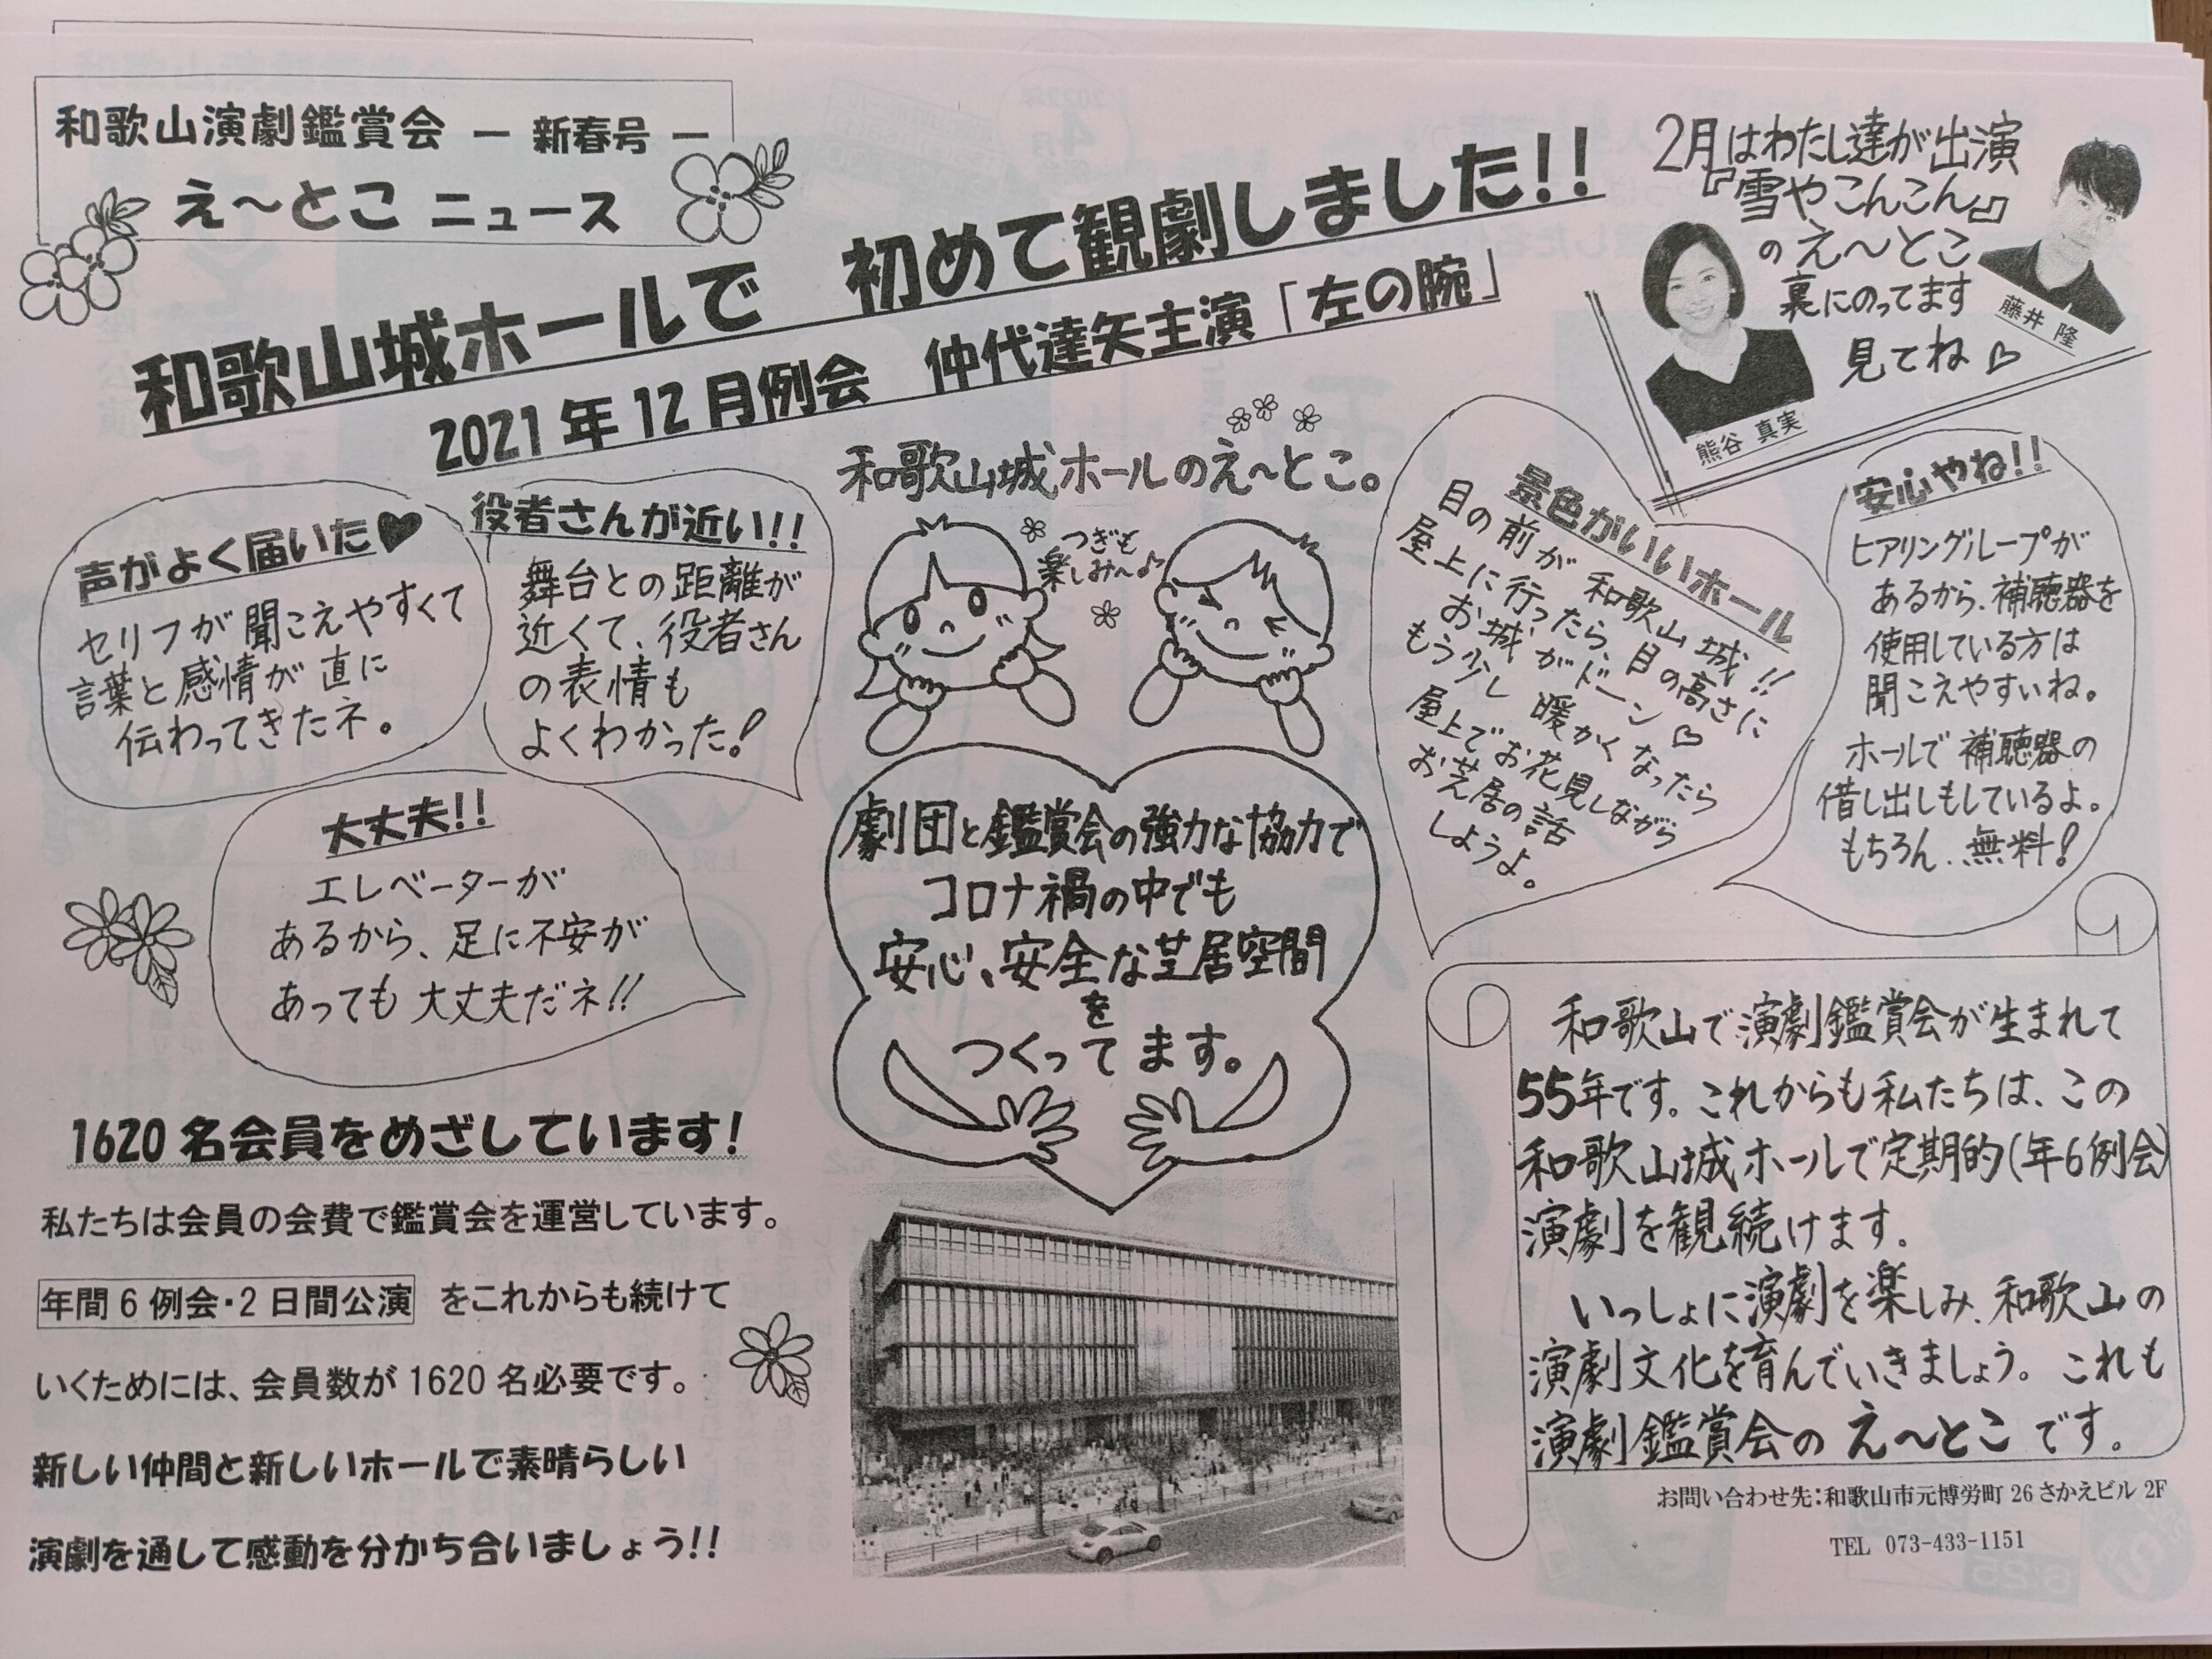 和歌山演劇鑑賞会 ― 新春号 ―
え～とこ ニュース
和歌山城ホールで 初めて観劇しました!!
2021年12月例会 仲代達矢主演「左の腕」
2月はわたし達が出演
『雪やこんこん』
のえ～とこ
裏にのってます
見てね♡
藤井 隆
熊谷 真実
和歌山城ホールのえ～とこ。
つぎも
楽しみ～♪
声がよく届いた♥
セリフが聞こえやすくて
言葉と感情が直に
伝わってきたネ。
役者さんが近い!!
舞台との距離が
近くて、役者さん
の表情も
よくわかった!
大丈夫!!
エレベーターが
あるから、足に不安が
あっても大丈夫だネ!!
景色がいいホール
目の前が和歌山城!!
屋上に行ったら、目の高さに
お城がドーン♡
もう少し暖かくなったら
屋上でお花見しながら
お芝居の話
しようよ。
安心やね!!
ヒアリングループが
あるから、補聴器を
使用している方は
聞こえやすいね。
ホールで補聴器の
借し出しもしているよ。
もちろん、無料!
劇団と鑑賞会の強力な協力で
コロナ禍の中でも
安心、安全な芝居空間
を
つくってます。
1620名会員をめざしています!
私たちは会員の会費で鑑賞会を運営しています。
年間6例会・2日間公演 をこれからも続けて
いくためには、会員数が1620名必要です。
新しい仲間と新しいホールで素晴らしい
演劇を通して感動を分かち合いましょう!!
和歌山で演劇鑑賞会が生まれて
55年です。これからも私たちは、この
和歌山城ホールで定期的(年6例会)
演劇を観続けます。
いっしょに演劇を楽しみ、和歌山の
演劇文化を育んでいきましょう。これも
演劇鑑賞会のえ～とこです。
お問い合わせ先:和歌山市元博労町26さかえビル2F
TEL 073-433-1151